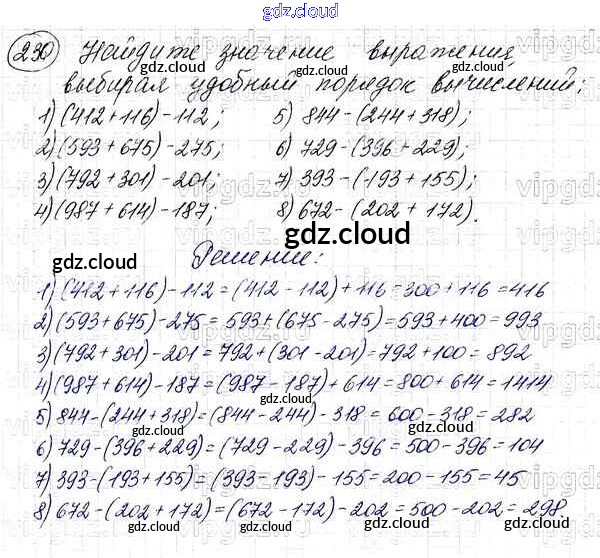 gdz.cloud
230 Найдите значение выражения,
выбирая удобный порядок вычислений:
1) (412+116)-112; 5) 844-(244+318);
2) (593+675)-275; 6) 729-(396+229);
3) (792+301)-201; 7) 393-(193+155);
4) (987+614)-187; 8) 672-(202+172).
gdz.cloud
Решение:
gdz.cloud gdz.cloud
1) (412+116)-112=(412-112)+116=300+116=416
2) (593+675)-275=593+(675-275)=593+400=993
3) (792+301)-201=792+(301-201)=792+100=892
4) (987+614)-187=(987-187)+614=800+614=1414
5) 844-(244+318)=(844-244)-318=600-318=282
6) 729-(396+229)=(729-229)-396=500-396=104
7) 393-(193+155)=(393-193)-155=200-155=45
8) 672-(202+172)=(672-172)-202=500-202=298